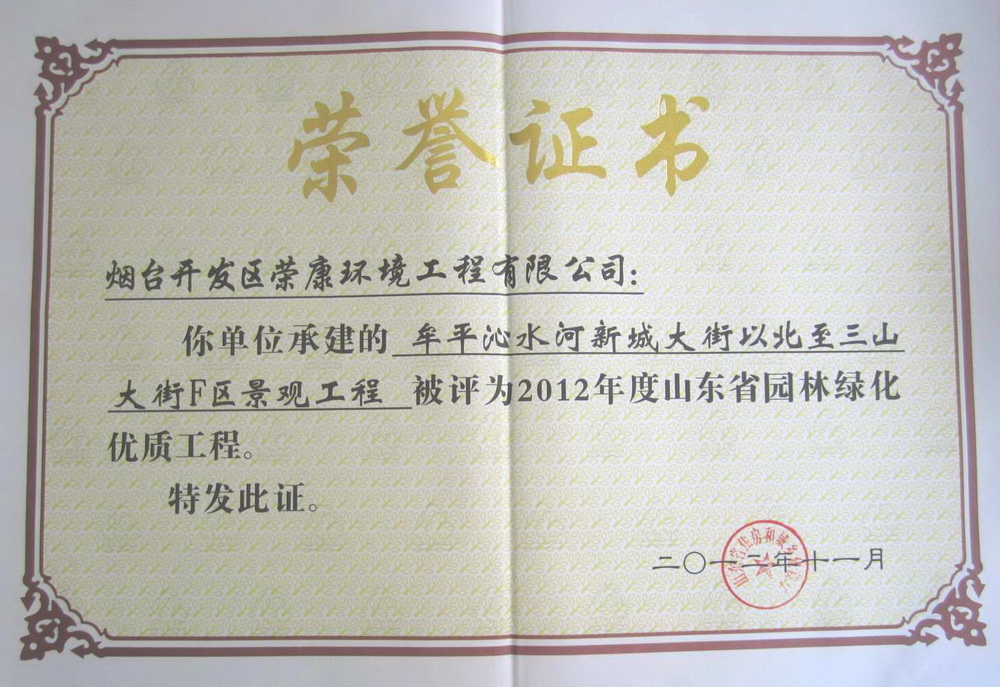 荣誉证书
烟台开发区荣康环境工程有限公司:
你单位承建的 牟平沁水河新城大街以北至三山
大街F区景观工程 被评为2012年度山东省园林绿化
优质工程。
特发此证。
二〇一二年十一月